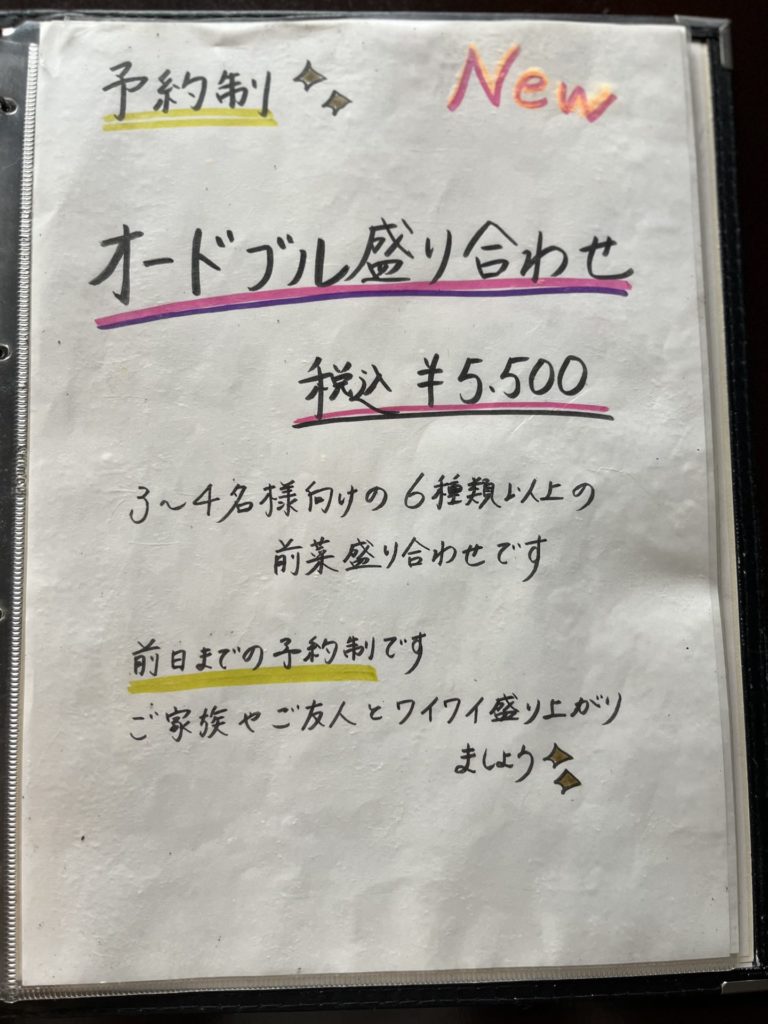 予約制 New
オードブル盛り合わせ
税込 ¥5.500
3～4名様向けの6種類以上の
前菜盛り合わせです
前日までの予約制です
ご家族やご友人とワイワイ盛り上がり
ましょう